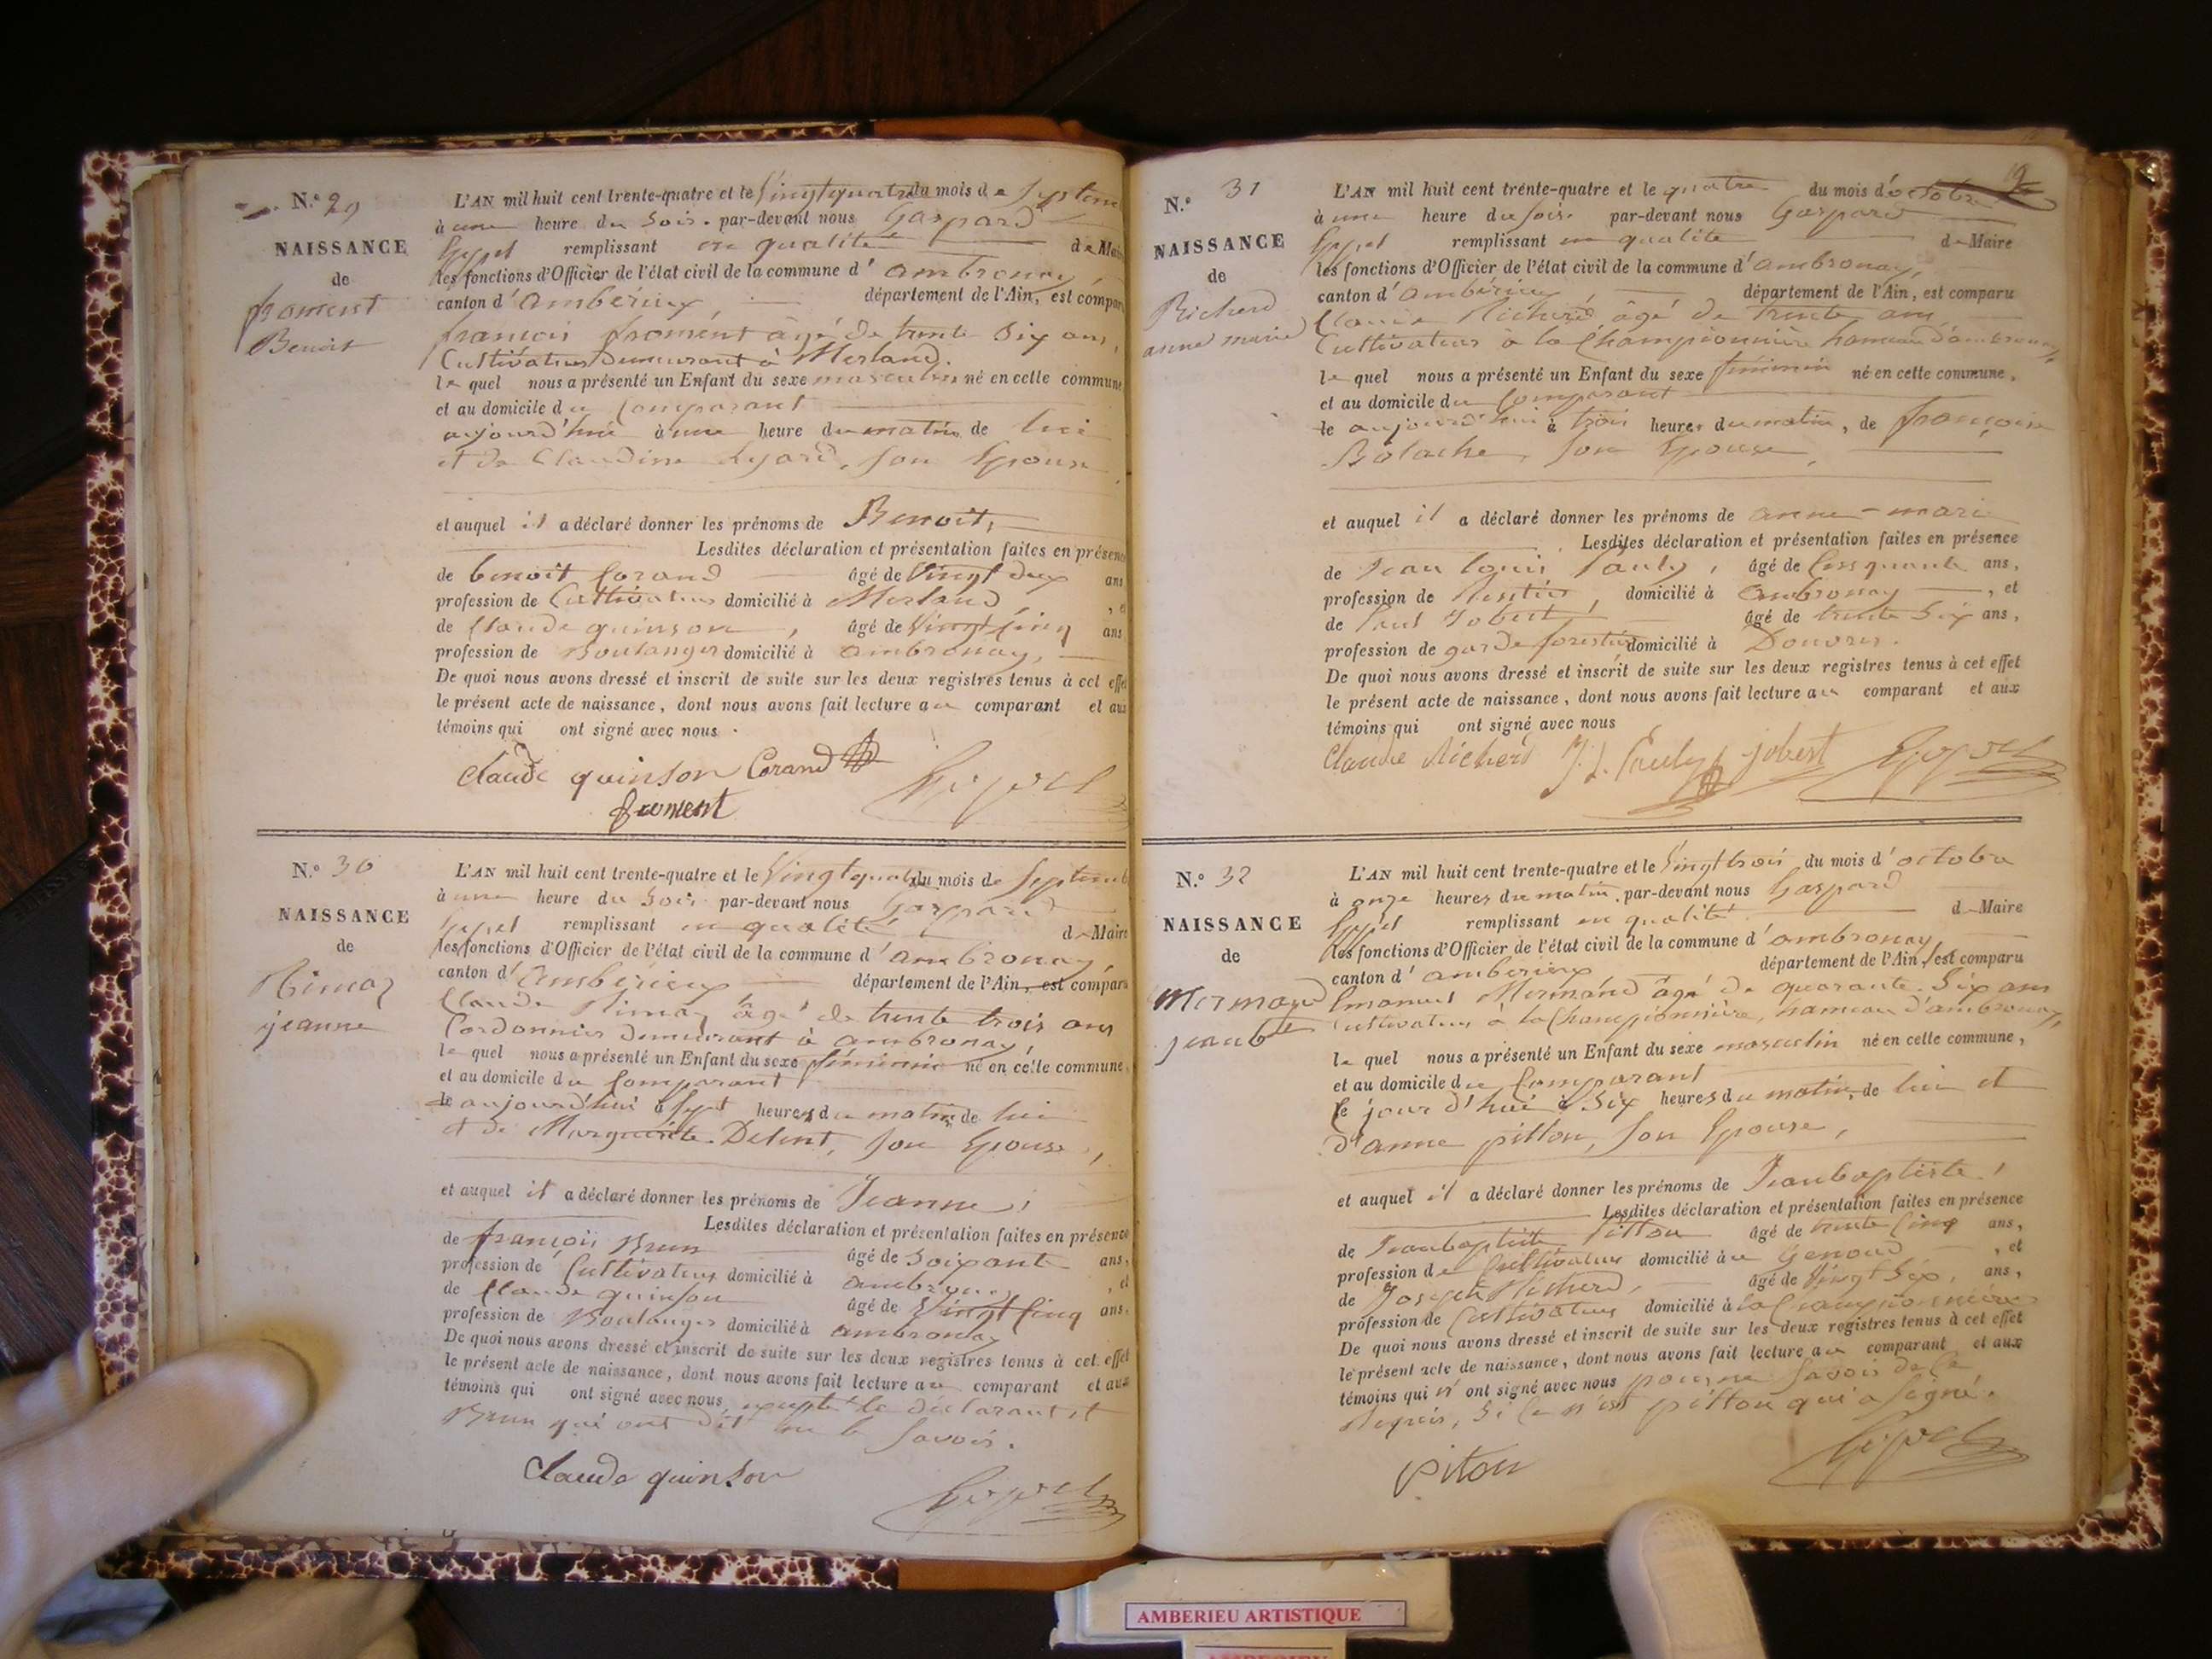 N.° 29
NAISSANCE
de
froment
Benoit
L'AN mil huit cent trente-quatre et le Vingtquatre du mois de Septem
à une heure du Soir. par-devant nous Gaspard
remplissant en qualité de Mai
les fonctions d'Officier de l'état civil de la commune d' ambronay,
canton d' ambérieux département de l'Ain, est compar
françois froment âgé de trente Six ans,
Cultivateur demeurant à Merland.
le quel nous a présenté un Enfant du sexe masculin né en cette commune
et au domicile du Comparant
aujourd'hui à une heure du matin de lui
et de Claudine Lyard, Son Epouse
et auquel il a déclaré donner les prénoms de Benoit,
Lesdites déclaration et présentation faites en présenc
de benoit Corand âgé de Vingt deux ans
profession de Cultivateur domicilié à Merland, et
de Claude quinson, âgé de Vingt Cinq ans
profession de Boulanger domicilié à ambronay,
De quoi nous avons dressé et inscrit de suite sur les deux registres tenus à cet effet
le présent acte de naissance, dont nous avons fait lecture au comparant et aux
témoins qui ont signé avec nous.
Claude quinson Corand
froment
N.° 30
NAISSANCE
de
Rimaz
jeanne
L'AN mil huit cent trente-quatre et le Vingtquatre du mois de Septemb
à une heure du Soir par-devant nous Gaspard
remplissant en qualité de Maire
les fonctions d'Officier de l'état civil de la commune d' ambronay,
canton d' Ambérieux département de l'Ain, est compar
Claude Rimaz âgé de trente trois ans
Cordonnier demeurant à ambronay,
le quel nous a présenté un Enfant du sexe féminin né en cette commune,
et au domicile du Comparant
le aujourd'hui à Sept heures du matin de lui
et de Marguerite Debent, Son Epouse,
et auquel il a déclaré donner les prénoms de Jeanne,
Lesdites déclaration et présentation faites en présence
de françois Brun âgé de Soixante ans,
profession de Cultivateur domicilié à ambronay, et
de Claude quinson âgé de Vingt Cinq ans.
profession de Boulanger domicilié à ambronay
De quoi nous avons dressé et inscrit de suite sur les deux registres tenus à cet effet
le présent acte de naissance, dont nous avons fait lecture au comparant et aux
témoins qui ont signé avec nous excepté le déclarant et
Brun qui ont dit ne le Savoir.
Claude quinson
N.° 31
NAISSANCE
de
Richerd
anne marie
L'AN mil huit cent trente-quatre et le quatre du mois d'octobre
à une heure du soir. par-devant nous Gaspard
remplissant en qualité de Maire
les fonctions d'Officier de l'état civil de la commune d'ambronay,
canton d' ambérieux département de l'Ain, est comparu
Claude Richerd âgé de trente ans
Cultivateur à la Championnière hameau d'ambronay,
le quel nous a présenté un Enfant du sexe féminin né en cette commune,
et au domicile du Comparant
le aujourd'hui à trois heures du matin, de françoise
Bolache, Son Epouse,
et auquel il a déclaré donner les prénoms de anne-marie
Lesdites déclaration et présentation faites en présence
de Jean louis Pauly, âgé de Cinquante ans,
profession de Rentier, domicilié à Ambronay, et
de Paul Jobert, âgé de trente Six ans,
profession de garde forestier domicilié à Douvres.
De quoi nous avons dressé et inscrit de suite sur les deux registres tenus à cet effet
le présent acte de naissance, dont nous avons fait lecture au comparant et aux
témoins qui ont signé avec nous
Claude Richerd J. L. Pauly jobert
N.° 32
NAISSANCE
de
Mermand
jean bte
L'AN mil huit cent trente-quatre et le Vingt trois du mois d' octobre
à onze heures du matin, par-devant nous Gaspard
remplissant en qualité de Maire
les fonctions d'Officier de l'état civil de la commune d' ambronay
canton d' amberieux département de l'Ain, est comparu
Emanuel Mermand âgé de quarante Six ans
Cultivateur à la Championnière, hameau d'ambronay,
le quel nous a présenté un Enfant du sexe masculin né en cette commune,
et au domicile du Comparant
le jour d'hui à Six heures du matin, de lui et
d'anne pitton, Son Epouse,
et auquel il a déclaré donner les prénoms de Jeanbaptiste,
Lesdites déclaration et présentation faites en présence
de Jeanbaptiste Pitton âgé de trente Cinq ans,
profession de Cultivateur domicilié à Genoud, et
de Joseph Richerd, âgé de Vingt Six, ans,
profession de Cultivateur domicilié à la Championnière
De quoi nous avons dressé et inscrit de suite sur les deux registres tenus à cet effet
le présent acte de naissance, dont nous avons fait lecture au comparant et aux
témoins qui n' ont signé avec nous pour ne Savoir de ce
requis, Si ce n'est pitton qui a Signé.
piton
AMBERIEU ARTISTIQUE